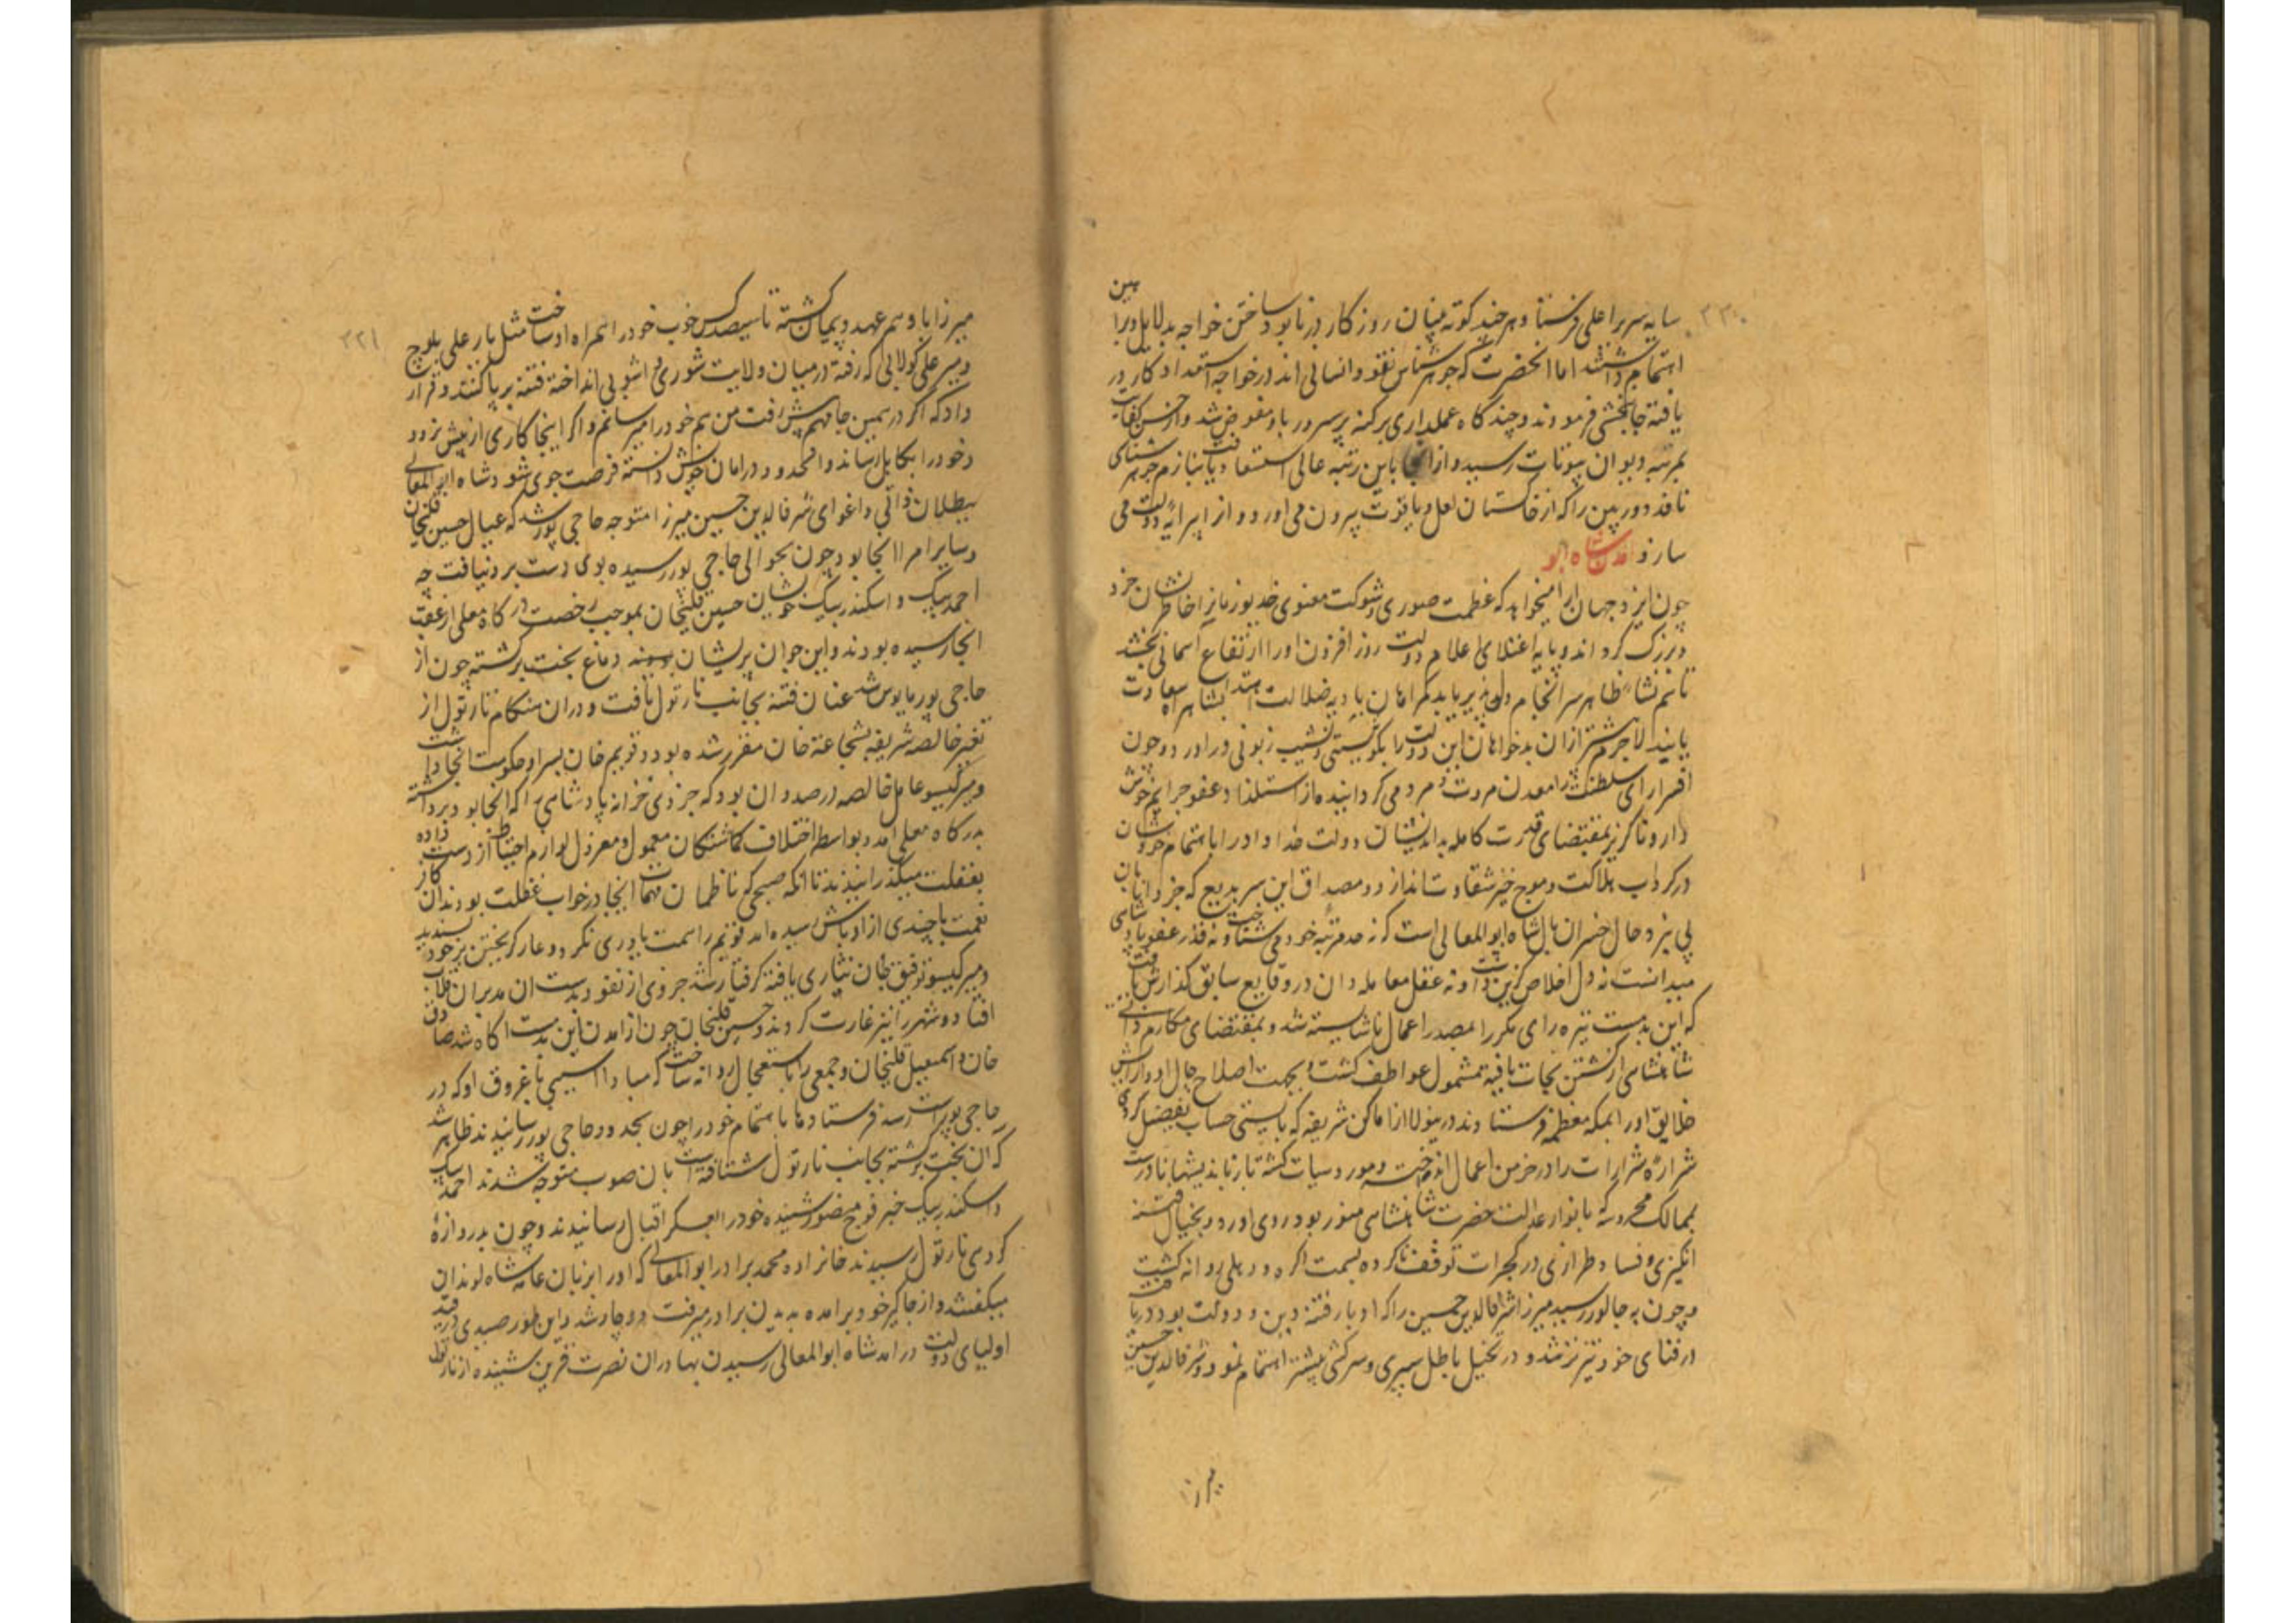 ۲۲۰
سایه سریر اعلی فرستاد و هر چند کوته بینان روزکار در نابود ساختن خواجه بدلایل و براهین
اهتمام داشتند اما انحضرت که جوهر شناس نقود انسانی اند در خواجه استعداد کار در
یافته جانبخشی فرمودند و چند کاه عملداری پرکنه پرسرور باو مفوض شد و از حسن کفایت
بمرتبه دیوان بیوتات رسید و از انجا باین رتبه عالی استسعاد یافت بنازم جوهر شناسی
ناقد دوربین را که از خاکستان لعل و یاقوت بیرون می اورد و از پیرایه دولت می
سازد امدن شاه ابو
چون ایزد جهان ارا میخواهد که عظمت صوری و شوکت معنوی خدیو زمانرا خاطرنشان خرد
و بزرک کرداند و پایه اعتلای اعلام دولت روز افزون او را ارتفاع اسمانی بخشد
تا هم نشاء ظاهر سرانجام پذیر باید کمراهان بادیه ضلالت بشاهراه سعادت
یابند لاجرم پیشتر ازان بدخواهان این دولت را بکو نیستی و نشیب زبونی در اورد و چون
افسر ارای سلطنت را معدن مروت و مردمی کردانیده از استلذاذ عفو جرایم خوش
دارد ناکزیر بمقتضای قدرت کامله بداندیشان دولت خداداد را باهتمام خودشان
در کرداب هلاکت و موج خیز شقاوت اندازد و مصداق این سر بدیع که خردوران بان
پی برند حال خسران مال شاه ابوالمعالی است که نه حد مرتبه خود می شناخت و نه قدر عفو پادشاهی
میدانست نه دل اخلاص کزین داشت و نه عقل معامله دان در وقایع سابق کذارش یافت
که این بدمست تیره رای مکرر مصدر اعمال ناشایسته شد و بمقتضای مکارم ذاتی
شاهنشاهی از کشتن نجات یافته مشمول عواطف کشت و بجهت اصلاح حال او و ارامش
خلایق او را بمکه معظمه فرستادند در ینولا از اماکن شریفه که بایستی حساب بفضل کردی
شراره شرارت را در خرمن اعمال انداخته و مورد سیات کشته باز باندیشهای نادرست
بممالک محروسه که بانوار عدالت حضرت شاهنشاهی منور بود روی اورد و بخیال فتنه
انکیزی و فساد طرازی در کجرات توقف ناکرده بسمت اکره و دهلی روانه کشت
و چون به جالور رسید میرزا شرفالدین حسین را که ادبار رفته دین و دولت بود دریافت
در فنای خود تیزتر شد و در تخیل باطل سپری و سرکشی بیشتر اهتمام نمود و شرفالدین حسین
میرزا
۲۲۱
میرزا با او هم عهد و پیمان کشته تا سیصد کس خوب خود را همراه او ساخت مثل یار علی بلوچ
و میر علی کولابی که رفته در میان ولایت شوری و اشوبی انداخته فتنه برپا کنند و قرار
داد که اکر در همین جا مهم پیش رفت من هم خود را میرسانم و اکر اینجا کاری از پیش نرود
خود را بکابل رساند و انحدود را مامن خویش دانسته فرصت جوی شود شاه ابوالمعالی
ببطلان ذاتی و اغوای شرفالدین حسین میرزا متوجه حاجی پور شد که عیال حسین قلیخان
و سایر امرا انجا بود چون بحوالی حاجی پور رسیده بوی دست برد نیافت چه
احمد بیک و اسکندر بیک خویشان حسین قلیخان بموجب رخصت درکاه معلی از عقب
انجا رسیده بودند و این جوان پریشان دماغ بخت برکشته چون از
حاجی پور مایوس شد عنان فتنه بجانب نارنول تافت و دران هنکام نارنول از
تغیر خالصه شریفه بشجاعت خان مقرر شده بود و قویم خان پسر او حکومت انجا داشت
و میر کیسو عامل خالصه درصدد ان بود که جزوی خزانه پادشاهی را که انجا بود برداشته
بدرکاه معلی اید و بواسطه اختلاف کماشتکان معمول و معزول لوازم احتیاط از دست داده
بغفلت میکذرانیدند تا انکه صبحی که ناظمان مهمات انجا در خواب غفلت بودند ان کافر
نعمت با چندی از اوباش رسیده امد قویم را سمت یاوری نکرد و عار کریختن بر خود پسندید
و میر کیسو توفیق جان نثاری نیافته کرفتار شد جزوی از نقود بدست ان مدبران قلاب
افتاد و شهر را نیز غارت کردند و حسین قلیخان چون از امدن این بدمست اکاه شد صادق
خان و اسمعیل قلیخان و جمعی را باستعجال روانه ساخت که مبادا اسیبی باغروق او که در
حاجی پور است رسد فرستادها باهتمام خود را چون بحدود حاجی پور رسانیدند ظاهر شد
که ان بخت برکشته بجانب نارنول شتافته است بان صوب متوجه شدند احمد بیک
و اسکندر بیک خبر فوج منصور شنیده خود را بعسکر اقبال رسانیدند و چون بدروازه
کروهی نارنول رسیدند خانزاده محمد برادر ابوالمعالی که او را بزبان عامه شاه لوندان
میکفتند از جاکیر خود برامده بدیدن برادر میرفت دوچار شد و این طور صیدی در قید
اولیای دولت درامد شاه ابوالمعالی رسیدن بهادران نصرت قرین شنیده از نارنول